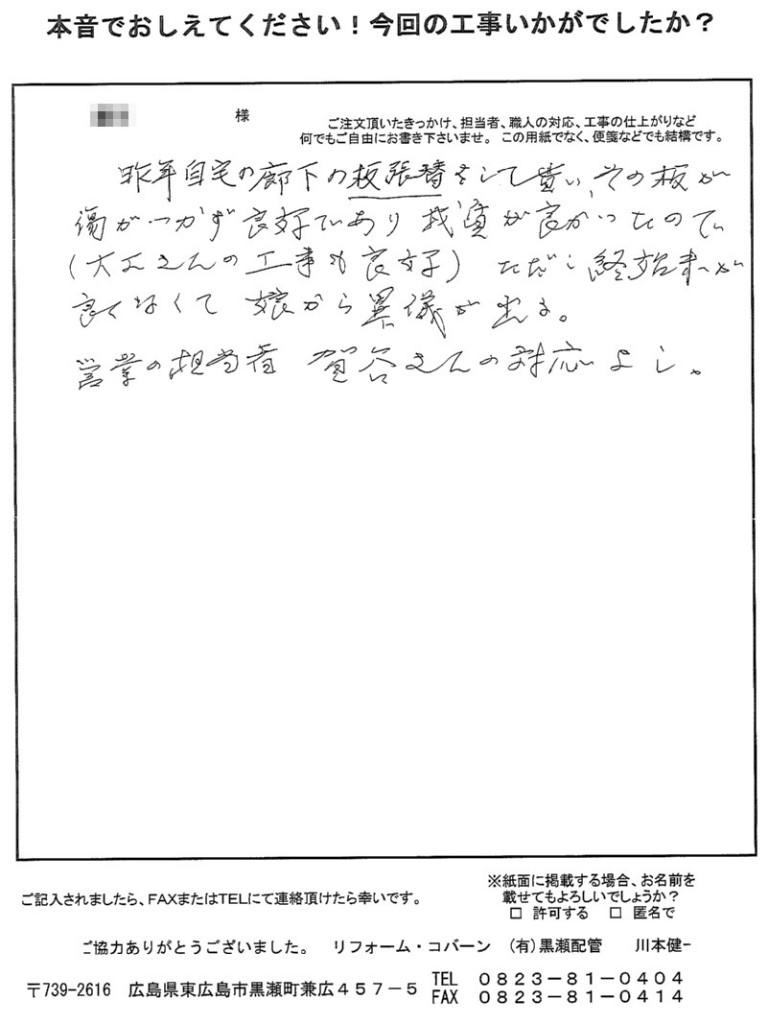 本音でおしえてください！今回の工事いかがでしたか？
様
ご注文頂いたきっかけ、担当者、職人の対応、工事の仕上がりなど
何でもご自由にお書き下さいませ。この用紙でなく、便箋などでも結構です。
昨年自宅の廊下の板張替をして貰い、その板が
傷がつかず良好であり 材質が良かったので
(大工さんの工事も良好) ただし 終始末が
良くなくて 娘から異儀が出る。
営業の担当者 賀谷さんの対応よし。
ご記入されましたら、FAXまたはTELにて連絡頂けたら幸いです。
※紙面に掲載する場合、お名前を
載せてもよろしいでしょうか？
□ 許可する □ 匿名で
ご協力ありがとうございました。 リフォーム・コバーン (有)黒瀬配管 川本健一
〒739-2616 広島県東広島市黒瀬町兼広４５７－５
TEL ０８２３－８１－０４０４
FAX ０８２３－８１－０４１４